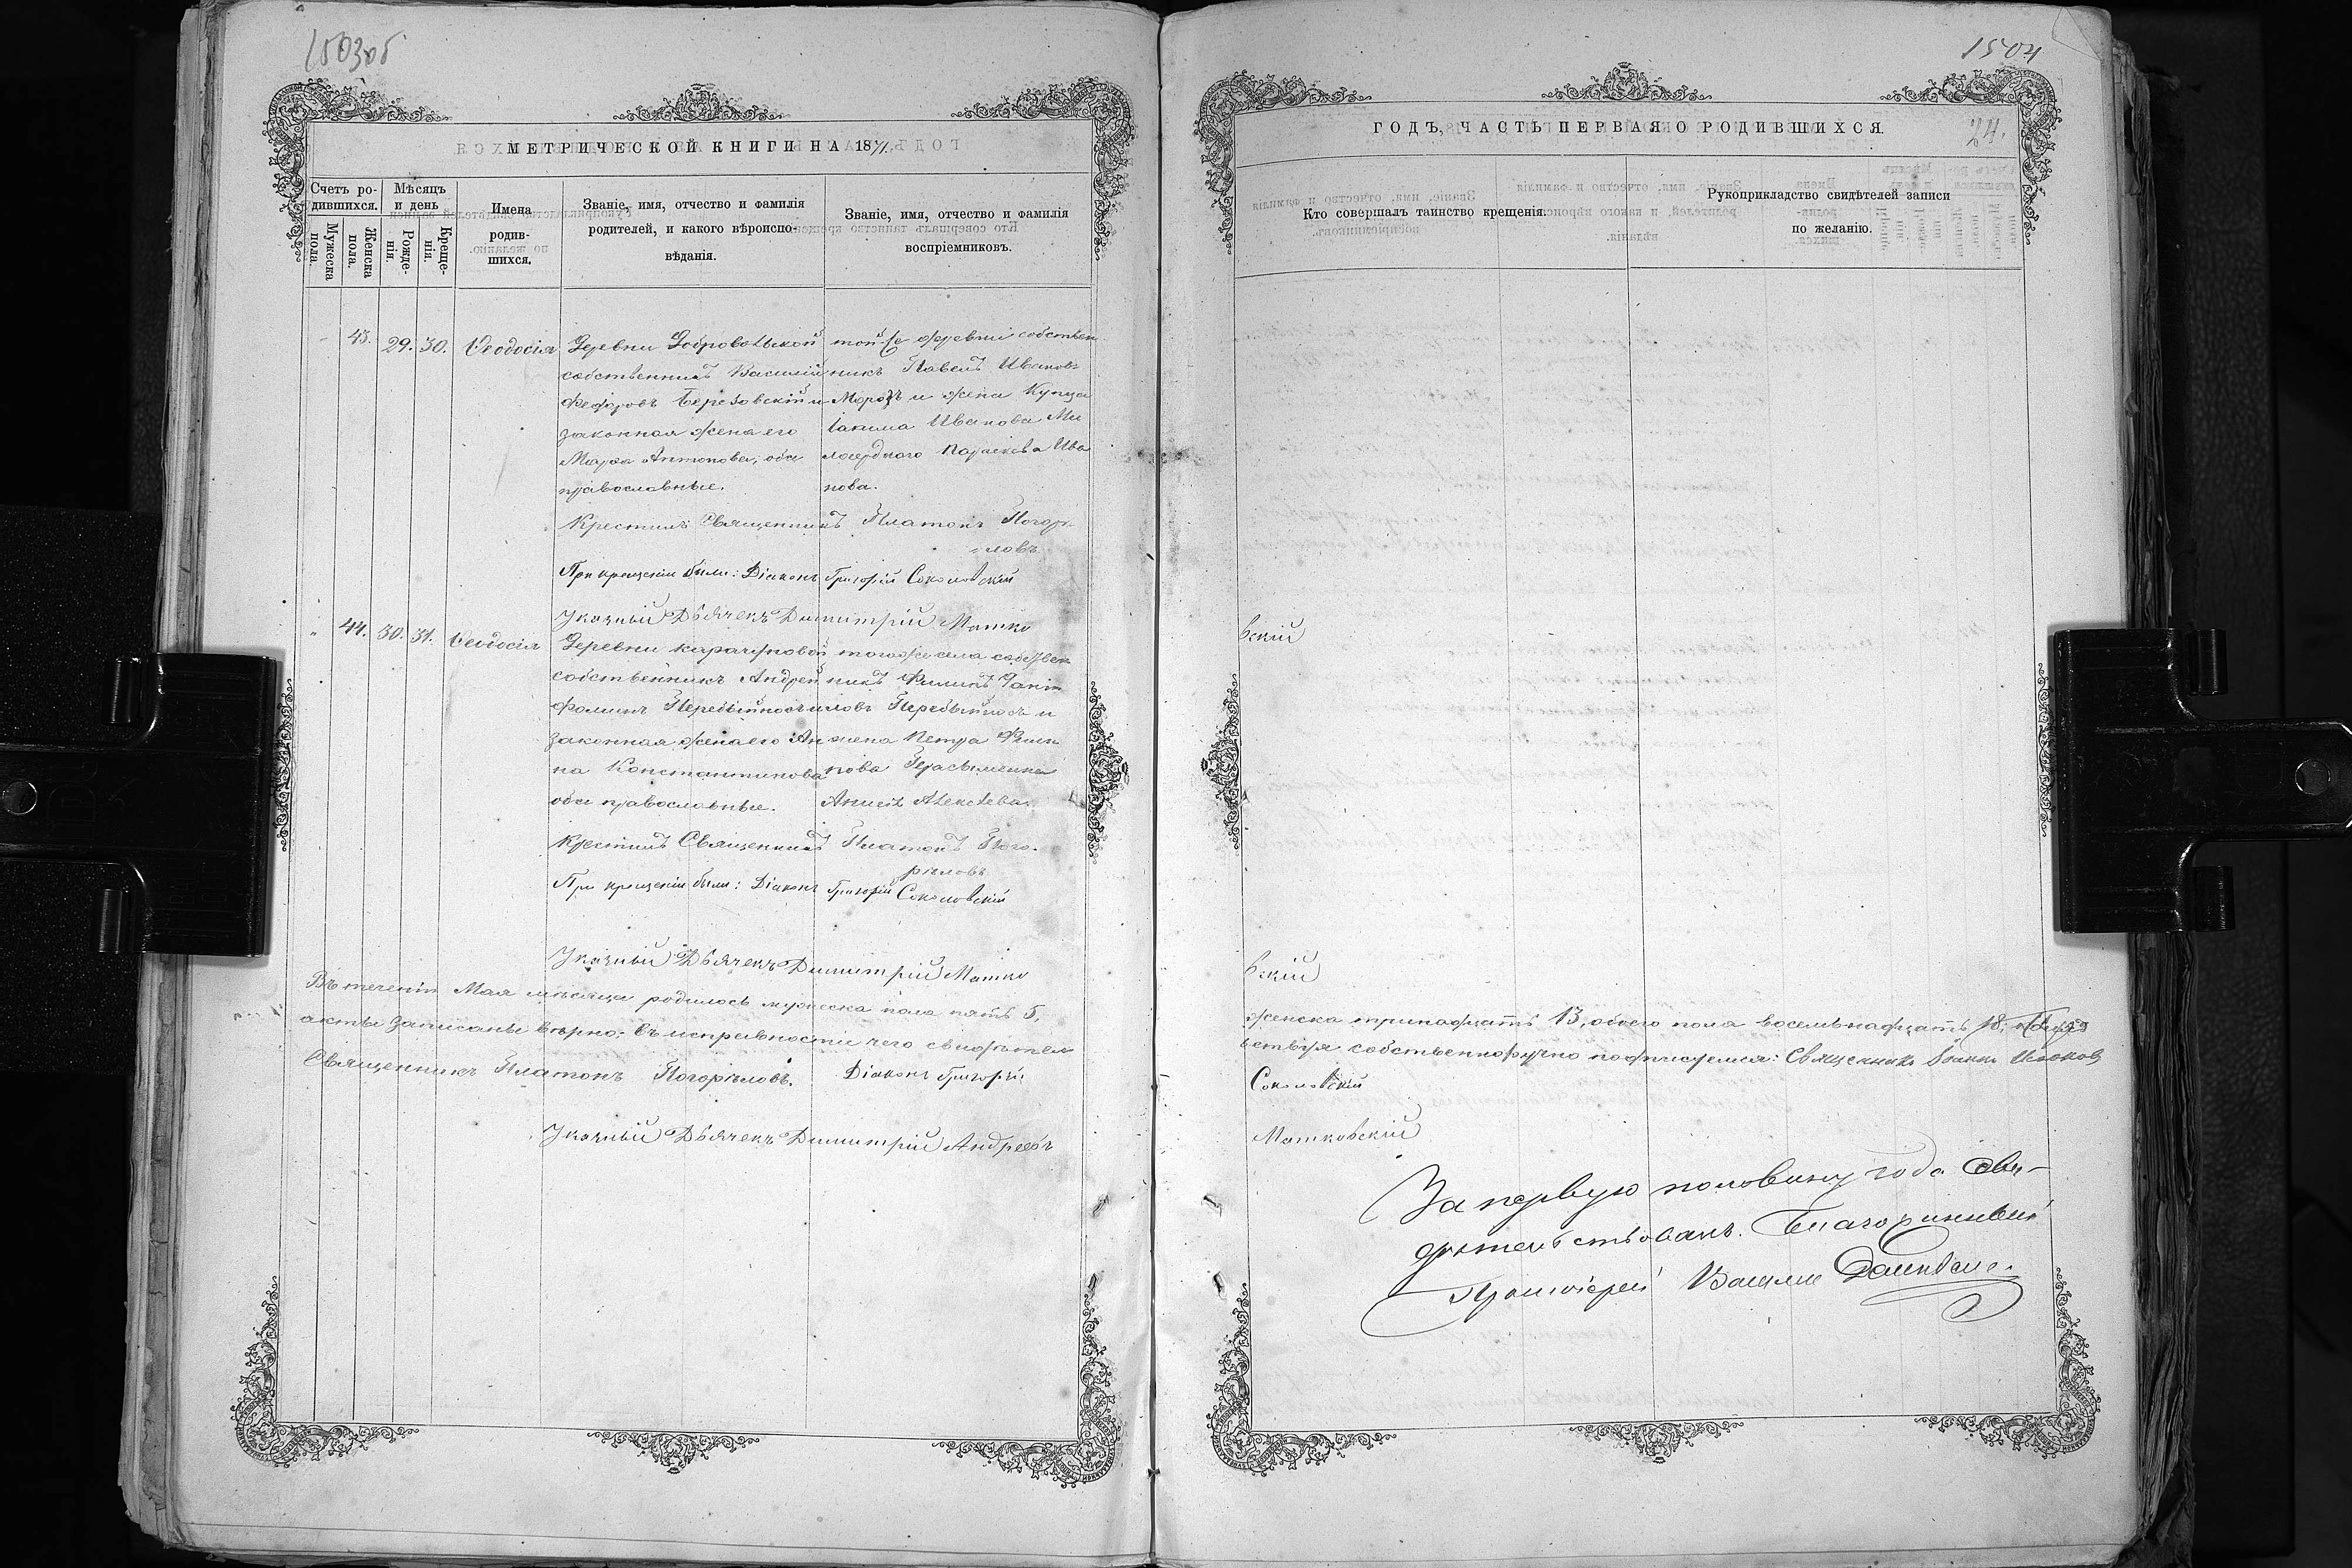 1503об
1504
24.
МЕТРИЧЕСКОЙ КНИГИ НА 1871.
ГОДЪ, ЧАСТЬ ПЕРВАЯ О РОДИВШИХСЯ.
Счетъ ро-
дившихся.
Мужеска
пола.
Женска
пола.
Мѣсяцъ
и день
Рожде-
нія.
Креще-
нія.
Имена
родив-
шихся.
Званіе, имя, отчество и фамилія
родителей, и какого вѣроиспо-
вѣданія.
Званіе, имя, отчество и фамилія
воспріемниковъ.
Кто совершалъ таинство крещенія.
Рукоприкладство свидѣтелей записи
по желанію.
43. 29. 30. Ѳеодосія
Деревни Добровольской
собственникъ Василій
Федоровъ Березовскій и
законная жена его
Марѳа Антонова, оба
православные.
той же деревни собствен
никъ Павелъ Ивановъ
Морозъ и жена Купца
Іакима Иванова Ми
лосердного Параскева Ива
нова.
Крестилъ Священникъ Платонъ Погорѣ-
ловъ
При крещеніи были: Діаконъ Григорій Соколовскій
Указный Дьячекъ Димитрій Матко
вскій
„ 44. 30. 31. Ѳеодосія
Деревни Карачуновой
собственникъ Андрей
Фоминъ Перебыйносъ и
законная жена его Ан
на Константинова
оба православные.
тогоже села собствен
никъ Филипъ Дані
иловъ Перебыйносъ и
жена Петра Фили
пова Герасименка
Анисія Алексѣева.
Крестилъ Священникъ Платонъ Пого-
рѣловъ
При крещеніи были: Діаконъ Григорій Соколовскій
Указный Дьячекъ Димитрій Матко
вскій
Въ теченіи Мая мѣсяца родилось мужеска пола пять 5,
женска тринадцать 13, обоего пола восемьнадцать 18,
акты записаны вѣрно; въ исправности чего свидѣтель
ствуя собственноручно подписуемся: Священникъ Іоаннъ
Священникъ Платонъ Погорѣловъ. Діаконъ Григорій
Соколовскій
Указный Дьячекъ Димитрій Андреевъ
Матковскій
За первую половину года Сви-
дѣтельствовалъ. Благочинный
Протоіерей Василій